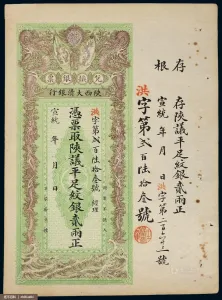 兌換銀票
陝西大清銀行
洪字第貳百陸拾叁號 經理
憑票取陝議平足紋銀貳兩正
宣統 年 月 日
存根
存陝議平足紋銀貳兩正
宣統 年 月 日 洪字第二百六十三號
洪字第貳百陸拾叁號